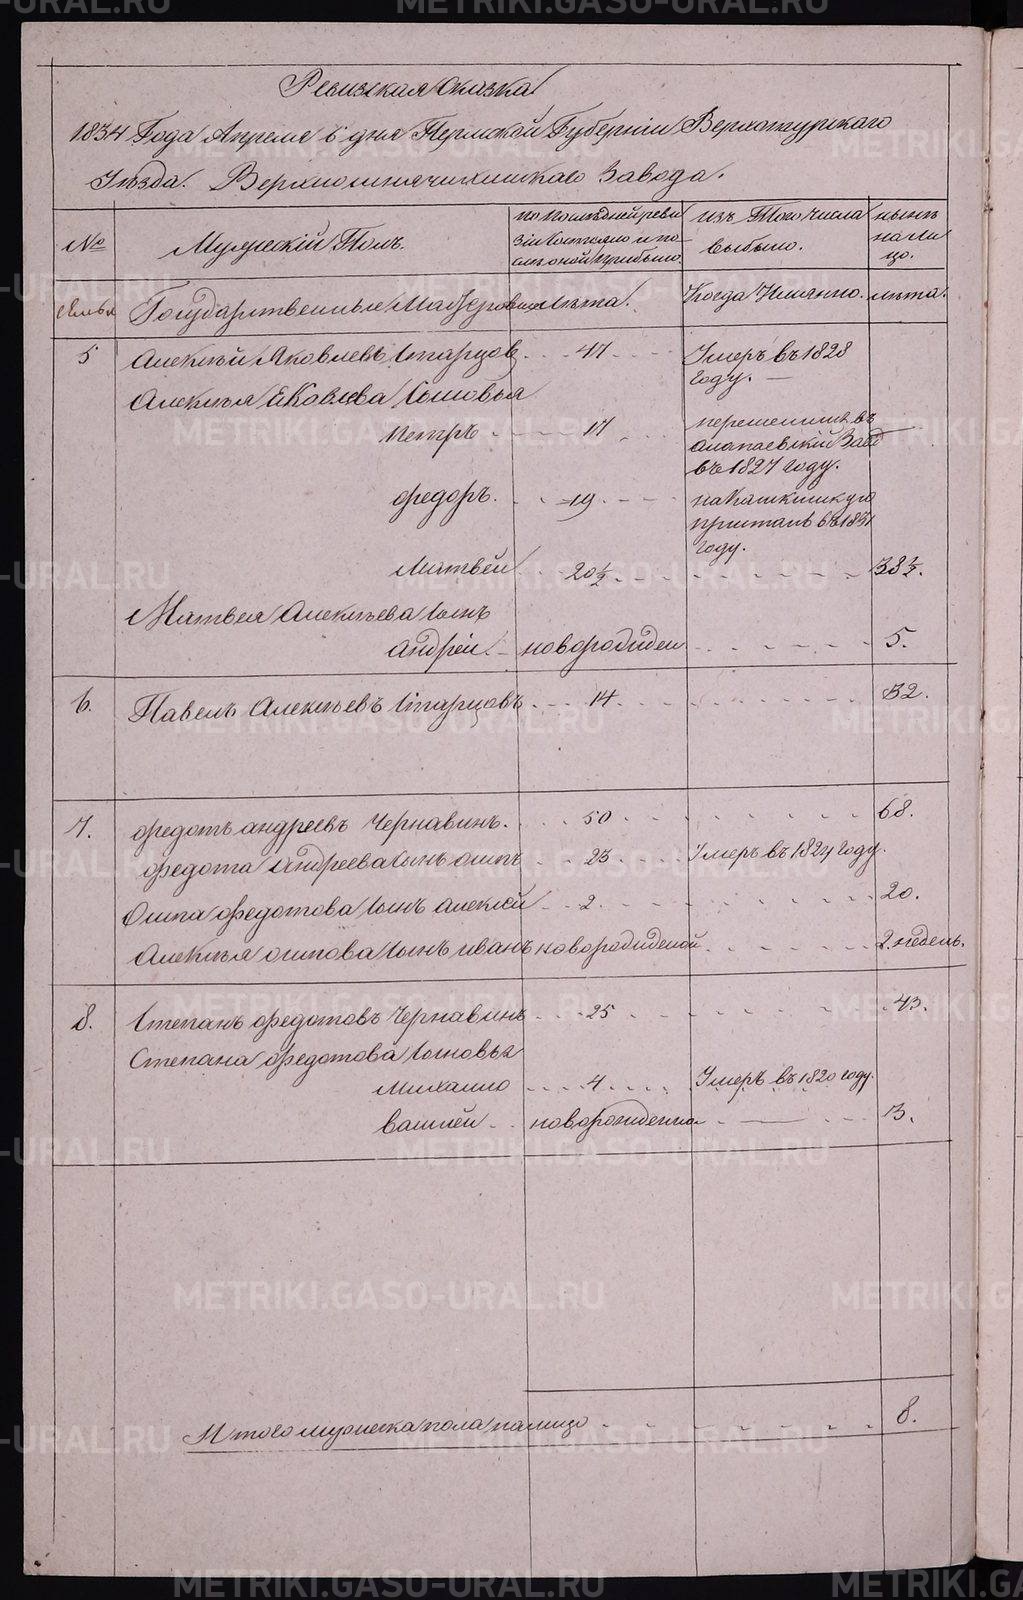 Ревизская Сказка
1834 Года Апреля 6 дня Пермской Губерніи Верхотурского
Уѣзда. Верхнесинячихинскаго Завода.
№
Мужескій Полъ.
по последней ревизіи Состояло и после оной прибыло
изъ Того числа выбыло.
нынѣ на лицо.
семья
Государственныя Мастеровыя
лѣта.
Когда Имянно.
лѣта.
5 Алексѣй Яковлевъ Старцовъ 47 Умеръ въ 1828
году.
Алексѣя Яковлева Сыновья
Петръ 17 перешелшъ въ
алапаевскій Заво
въ 1827 году.
федоръ. 19 на Кашкинскую
пристань въ 1831
году.
Матвей 20½ 38½.
Матвея Алексѣева сынъ
андрей. новорожден 5.
6. Павелъ Алексѣевъ Старцовъ 14 32.
7. федотъ андреевъ Чернавинъ. 50 68.
федота Андреева сынъ осипъ 23 Умеръ въ 1824 году.
Осипа федотова сынъ алексѣй 2 20.
Алексѣя осипова сынъ иванъ новорожденой 2. недель.
8. Степанъ федотовъ Чернавинъ 25 43.
Степана федотова Сыновья
Михаило 4 Умеръ въ 1820 году.
василей новорожденна 3.
Итого мужеска пола налицо 8.
METRIKI.GASO-URAL.RU